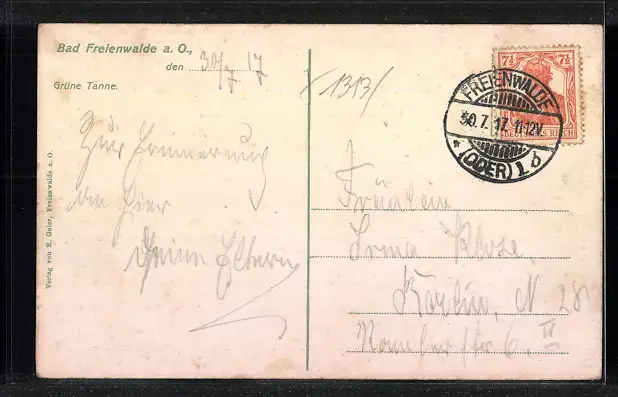 Bad Freienwalde a. O.,
den 30/7 17
Grüne Tanne.
Zur Erinnerung
von hier
Deine Eltern
Verlag von R. Geier, Freienwalde a. O.
1313/
7½ 7½
DEUTSCHES REICH
FREIENWALDE
30.7.17.11-12V.
* (ODER) 1 b
Fräulein
Irma Kloze
Berlin, N 28
6. IV